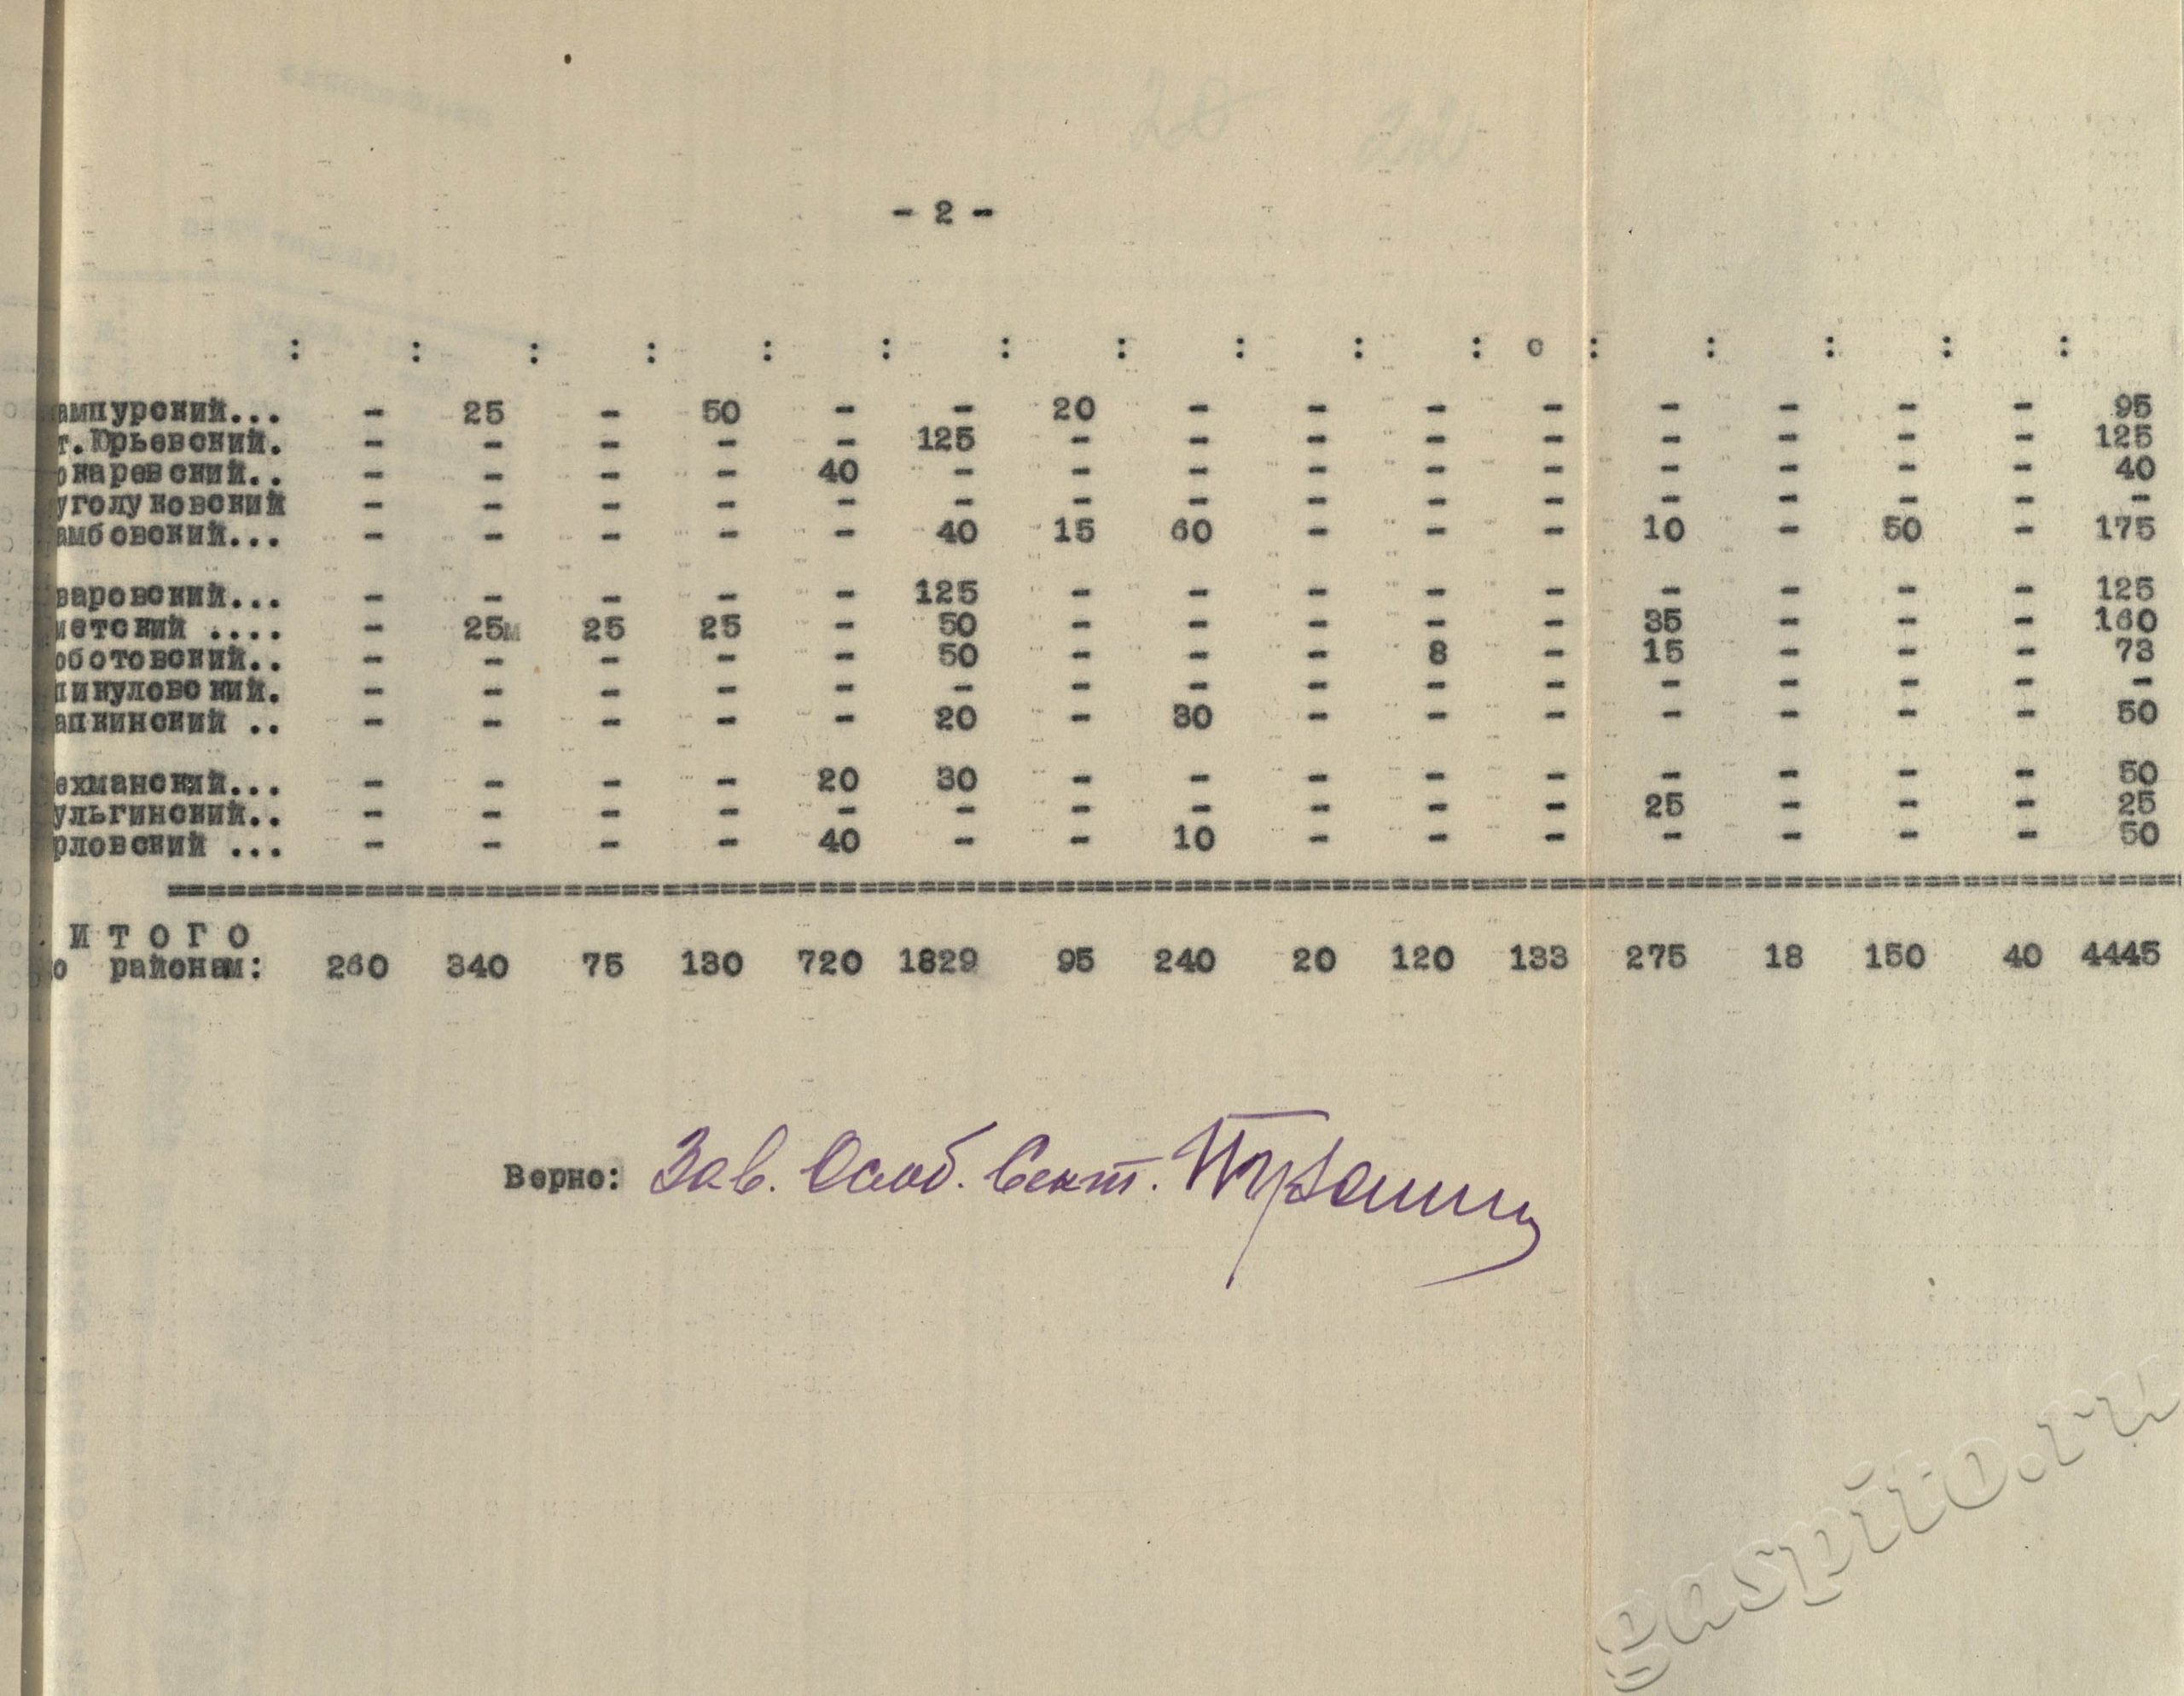 - 2 -
: : : : : : : : : : : с : : : : :
ампурский... - 25 - 50 - - 20 - - - - - - - - 95
т.Юрьевский. - - - - - 125 - - - - - - - - - 125
окаревский.. - - - - 40 - - - - - - - - - - 40
уголуковский - - - - - - - - - - - - - - - -
амбовский... - - - - - 40 15 60 - - - 10 - 50 - 175
варовский... - - - - - 125 - - - - - - - - - 125
метский .... - 25м 25 25 - 50 - - - - - 35 - - - 160
оботовский.. - - - - - 50 - - - 8 - 15 - - - 73
пикуловский. - - - - - - - - - - - - - - - -
апкинский .. - - - - - 20 - 30 - - - - - - - 50
ехманский... - - - - 20 30 - - - - - - - - - 50
ульгинский.. - - - - - - - - - - - 25 - - - 25
рловский ... - - - - 40 - - 10 - - - - - - - 50
И Т О Г О
о районам: 260 340 75 130 720 1829 95 240 20 120 133 275 18 150 40 4445
Верно: Зав. Особ. Сект.
gaspito.ru